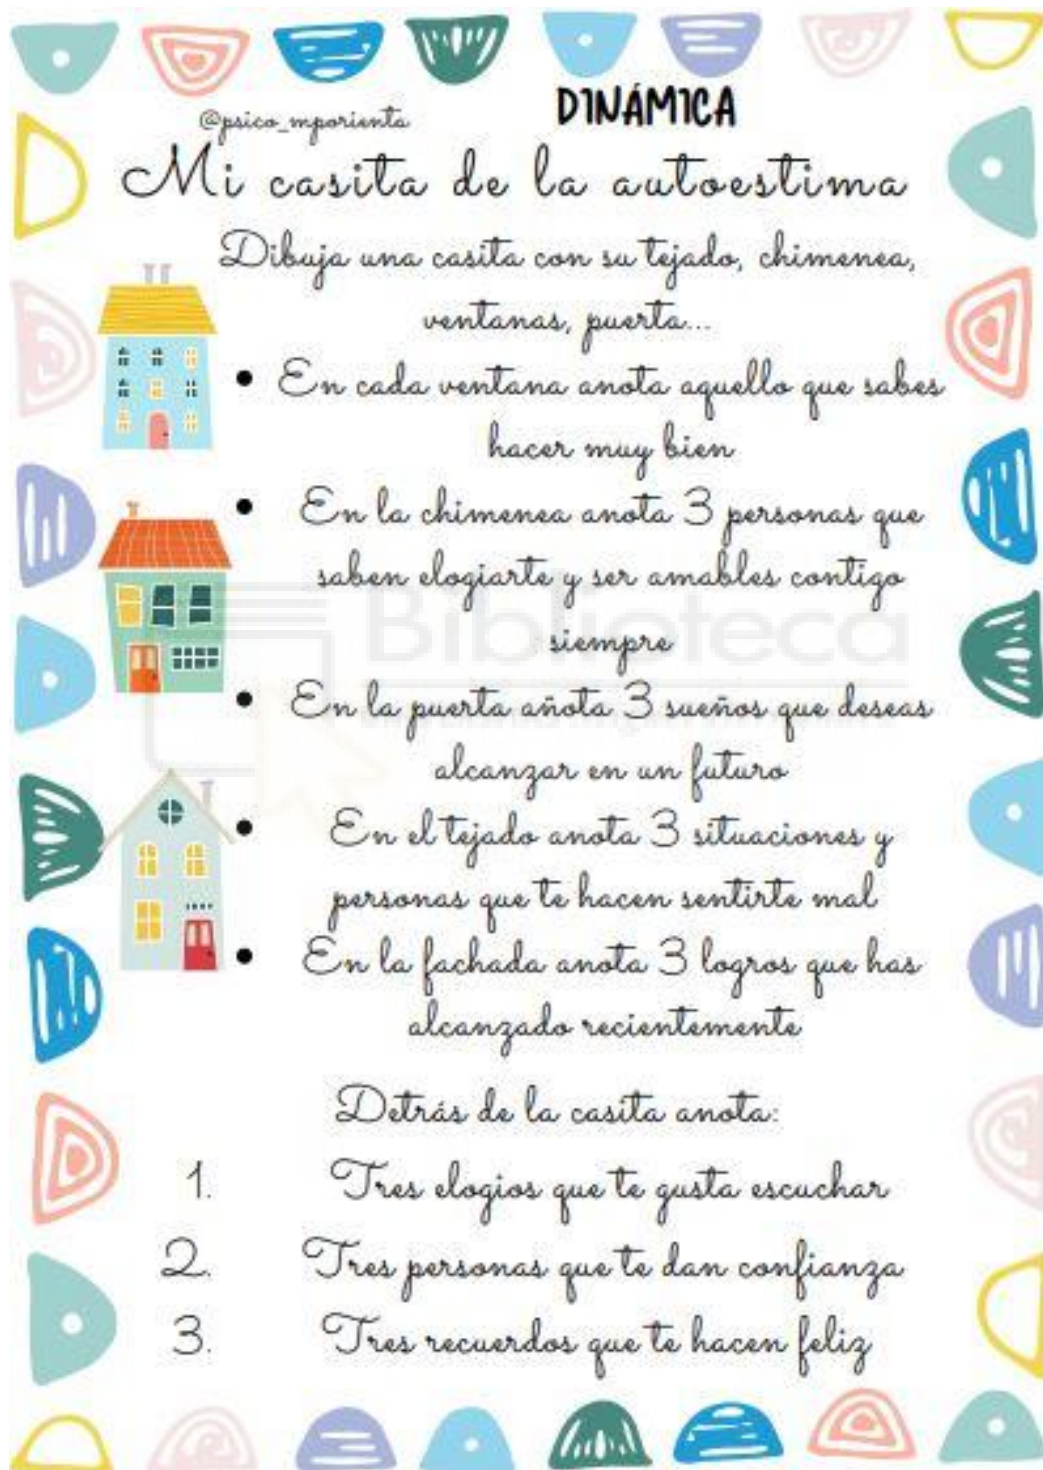 DINÁMICA
@psico_mporienta
Mi casita de la autoestima
Dibuja una casita con su tejado, chimenea,
ventanas, puerta...
• En cada ventana anota aquello que sabes
hacer muy bien
• En la chimenea anota 3 personas que
saben elogiarte y ser amables contigo
siempre
• En la puerta añota 3 sueños que deseas
alcanzar en un futuro
• En el tejado anota 3 situaciones y
personas que te hacen sentirte mal
• En la fachada anota 3 logros que has
alcanzado recientemente
Detrás de la casita anota:
1. Tres elogios que te gusta escuchar
2. Tres personas que te dan confianza
3. Tres recuerdos que te hacen feliz
Biblioteca